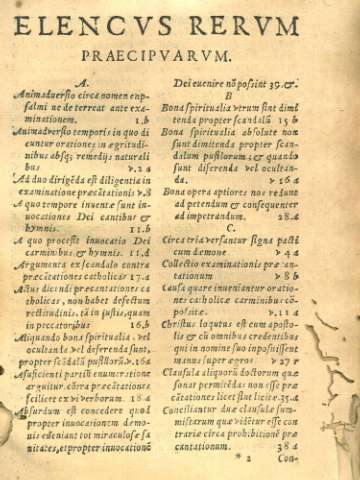 ELENCVS RERVM
PRAECIPVARVM.
A.
Animaduersio circa nomen enp-
salmi ne deterreat ante exa-
minationem. 1.b
Animaduersio temporis in quo di
cuntur orationes in ægritudi-
nibus absq; remedijs naturali
bus v.2 a
Ad duo dirigẽda est diligentia in
examinatione præcãtationis v.8
A quo tempore inuentæ sunt in-
uocationes Dei cantibus &
hymnis. 11.b
A quo processit inuocatio Dei
carminibus, & hymnis. 11.d
Argumenta ex scandalo contra
præcãtationes catholicas 17.a
Actus dicendi præcantationes ca
tholicas, non habet defectum
rectitudinis, tã in iustis, quam
in peccatoribus 16.b
Aliquando bona spiritualia, vel
occultanda vel deferenda sunt,
propter scãdalũ pusillorũ. v.16.a
A sufficienti partiũ enumeratione
arguitur cõtra præcãtationes
scilicet ex vi verborum. 18.a
Absurdum est concedere quod
propter inuocationem dæmo-
nis eueniant tot miraculosæ sa
nitates, et propter inuocationẽ
Dei euenire nõ possint 39.&.
B
Bona spiritualia verum sint dimi
tenda propter scandalũ 15 b
Bona spiritualia absolute non
sunt dimitenda propter scan-
dalum pusillorum; & quando
sunt diferenda vel occultan-
da. v 16 a
Bona opera aptiores nos redunt
ad petendum & consequenter
ad impetrandum. 28.a
C.
Circa tria versantur signa pacti
cum dæmone v 4 a
Collectio examinationis præcan-
tationum v 8 b
Causa quare inueniantur oratio-
nes catholicæ carminibus cõ-
positæ. v.11 a
Christus loqutus est cum aposto-
lis & cũ omnibus credentibus
qui in nomine suo inposuissent
manus super ægros v 37 a
Clausula aliquorũ doctorum quæ
sonat permitẽda; non esse præ
cãtationes licet sint licitæ. 35.a
Conciliantur duæ clausulæ sum-
mistarum quæ vidẽtur esse con
trariæ circa prohibitionẽ præ
cantationum. 38 a
* 2 Con-